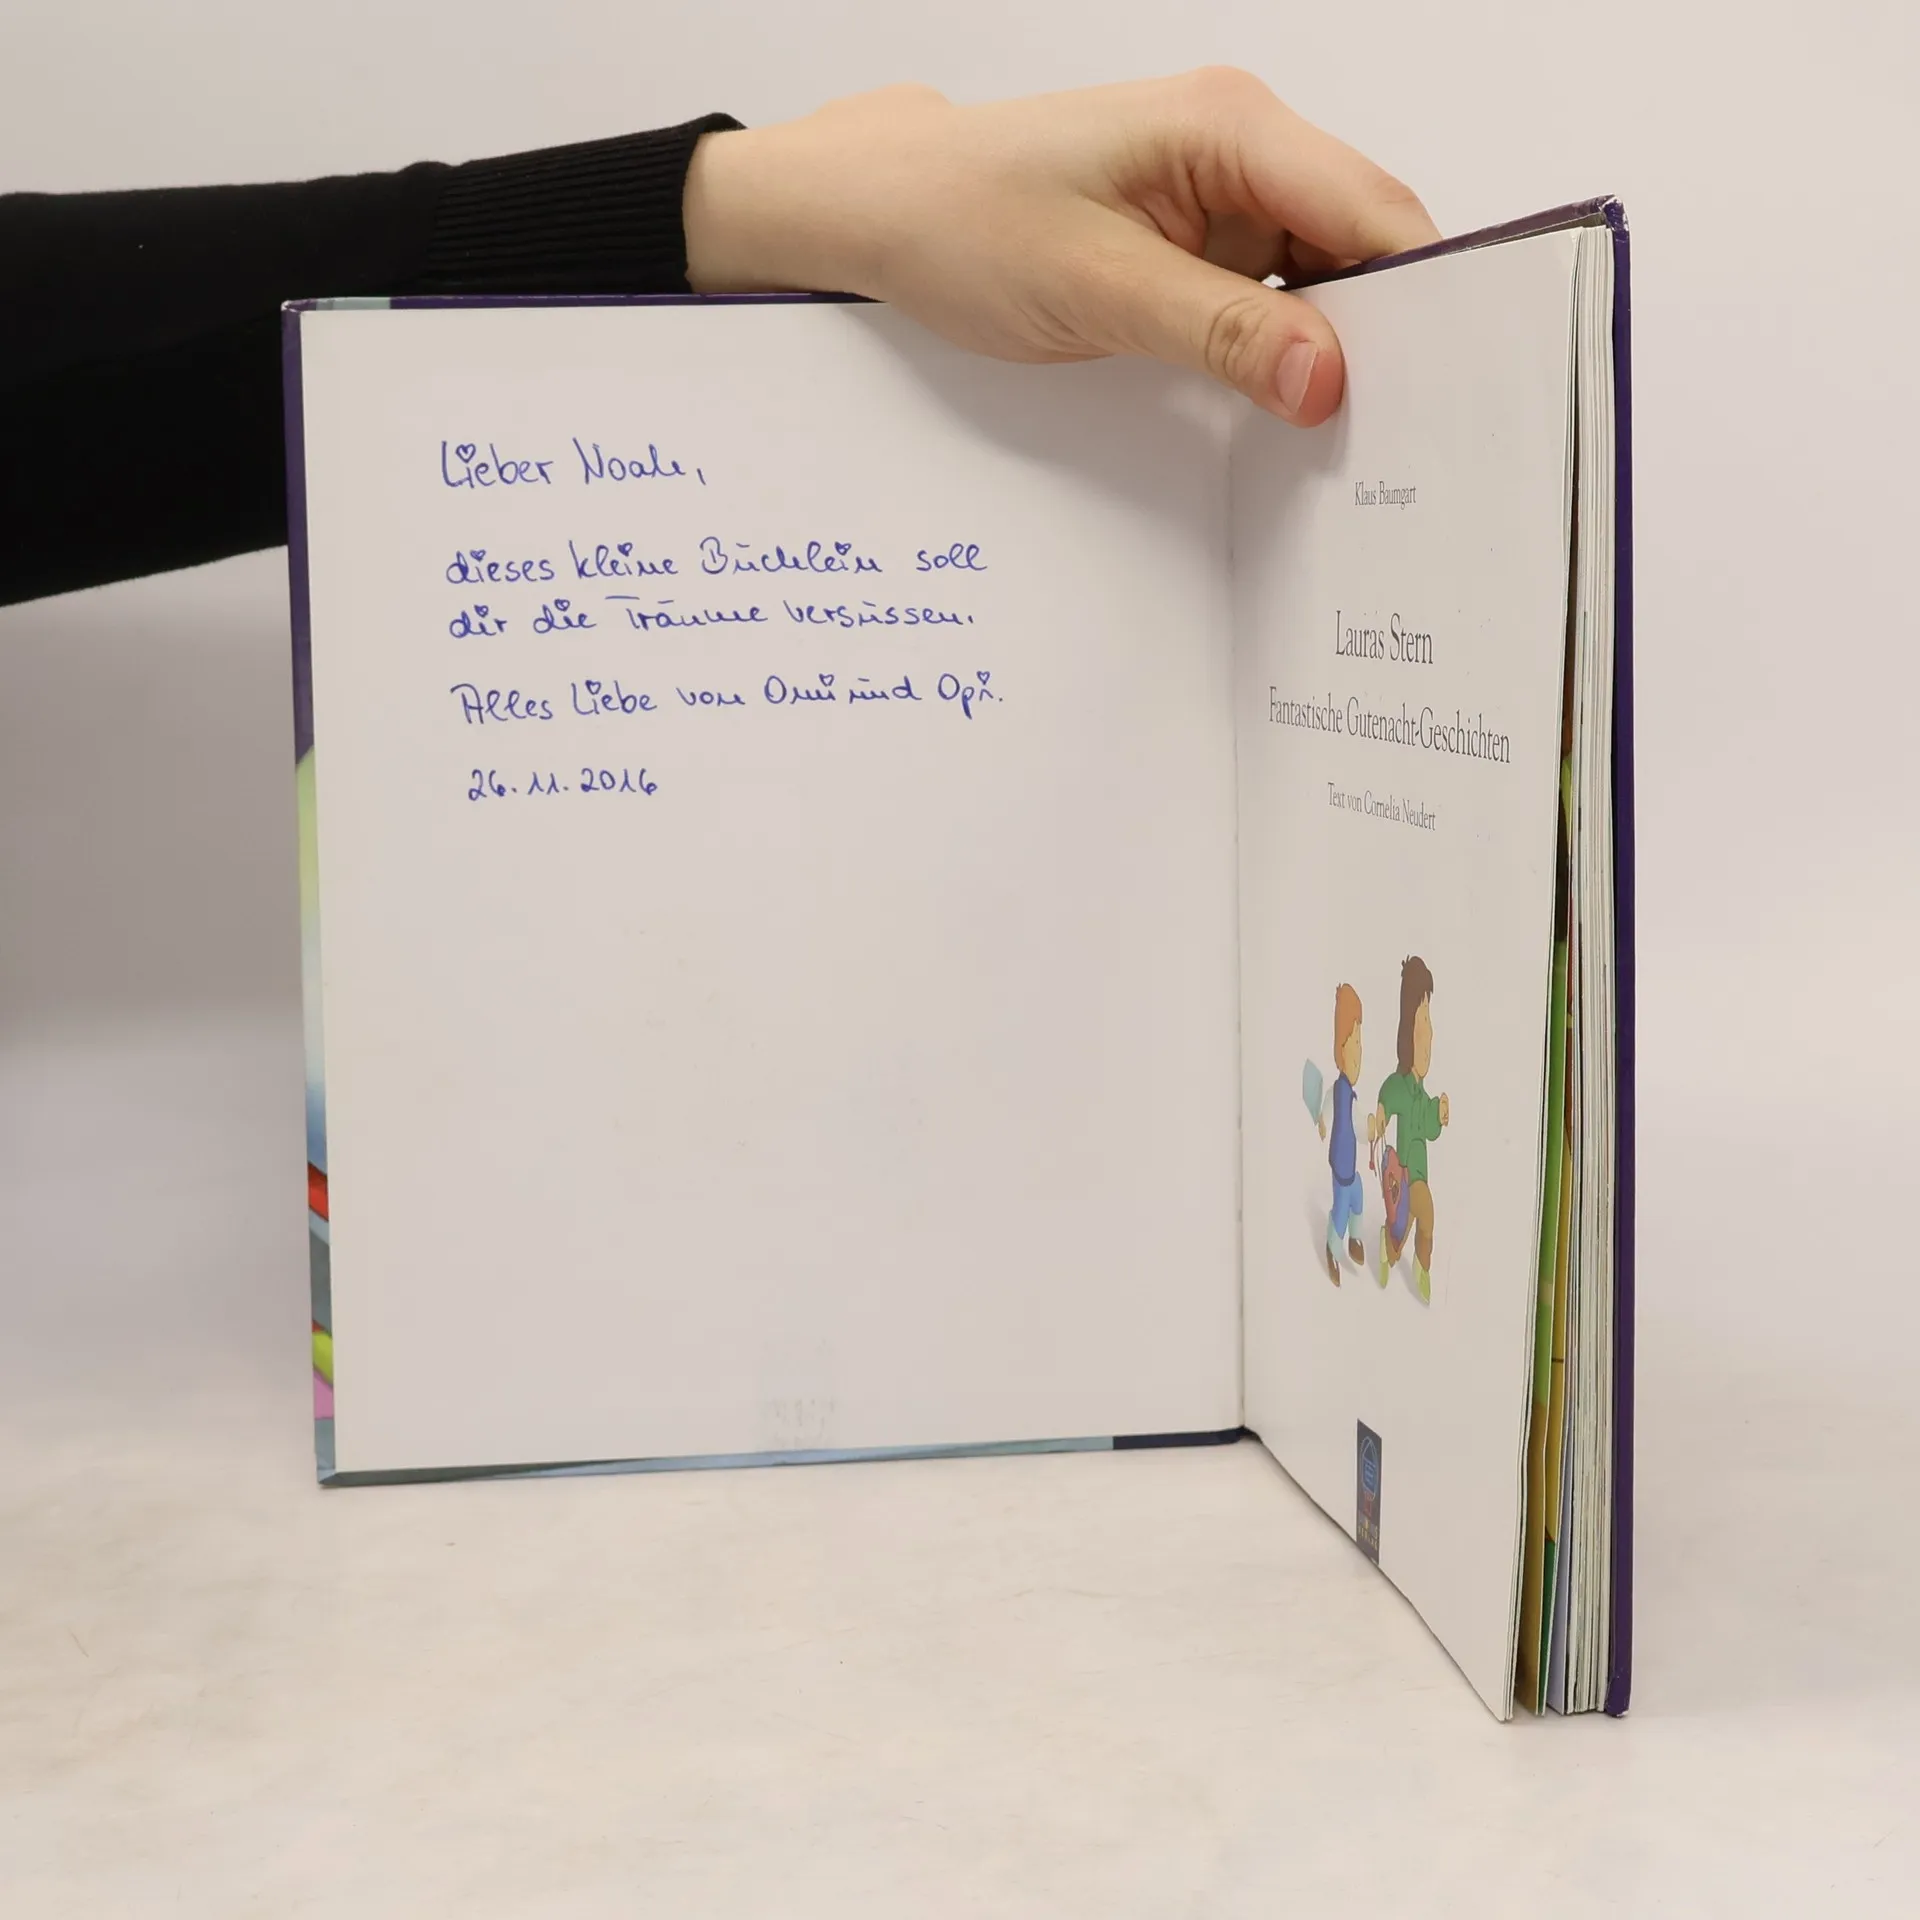 Lieber Noah,
dieses kleine Büchlein soll
dir die Träume versüssen.
Alles Liebe von Omi und Opi.
26.11.2016
Klaus Baumgart
Lauras Stern
Fantastische Gutenacht-Geschichten
Text von Cornelia Neudert